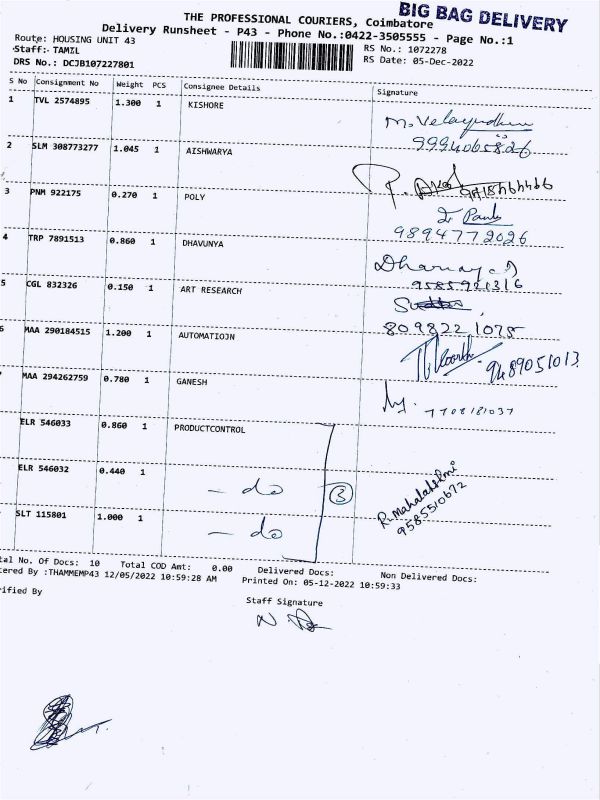 BIG BAG DELIVERY
THE PROFESSIONAL COURIERS, Coimbatore
Delivery Runsheet - P43 - Phone No.:0422-3505555 - Page No.:1
Route: HOUSING UNIT 43
Staff:- TAMIL
RS No.: 1072278
DRS No.: DCJB107227801
RS Date: 05-Dec-2022
S No Consignment No Weight PCS Consignee Details Signature
1 TVL 2574895 1.300 1 KISHORE
M. Velayudham
9994065826
2 SLM 308773277 1.045 1 AISHWARYA
3 PNM 922175 0.270 1 POLY
9894772026
4 TRP 7891513 0.860 1 DHAVUNYA
9585921316
5 CGL 832326 0.150 1 ART RESEARCH
8098221075
6 MAA 290184515 1.200 1 AUTOMATIOJN
9489051013
MAA 294262759 0.780 1 GANESH
7708181037
ELR 546033 0.860 1 PRODUCTCONTROL
ELR 546032 0.440 1 - do
3
R. Mahalakshmi
9585510672
SLT 115801 1.000 1 - do
tal No. Of Docs: 10 Total COD Amt: 0.00 Delivered Docs: Non Delivered Docs:
tered By :THAMMEMP43 12/05/2022 10:59:28 AM Printed On: 05-12-2022 10:59:33
rified By
Staff Signature